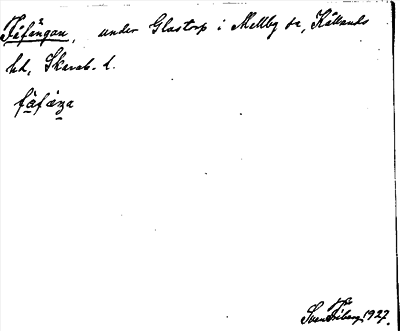 Fåfängan, under Glastorp i Mellby sn, Kållands
hd, Skarab. l.
fåfäŋa
Sven Friberg 1927.